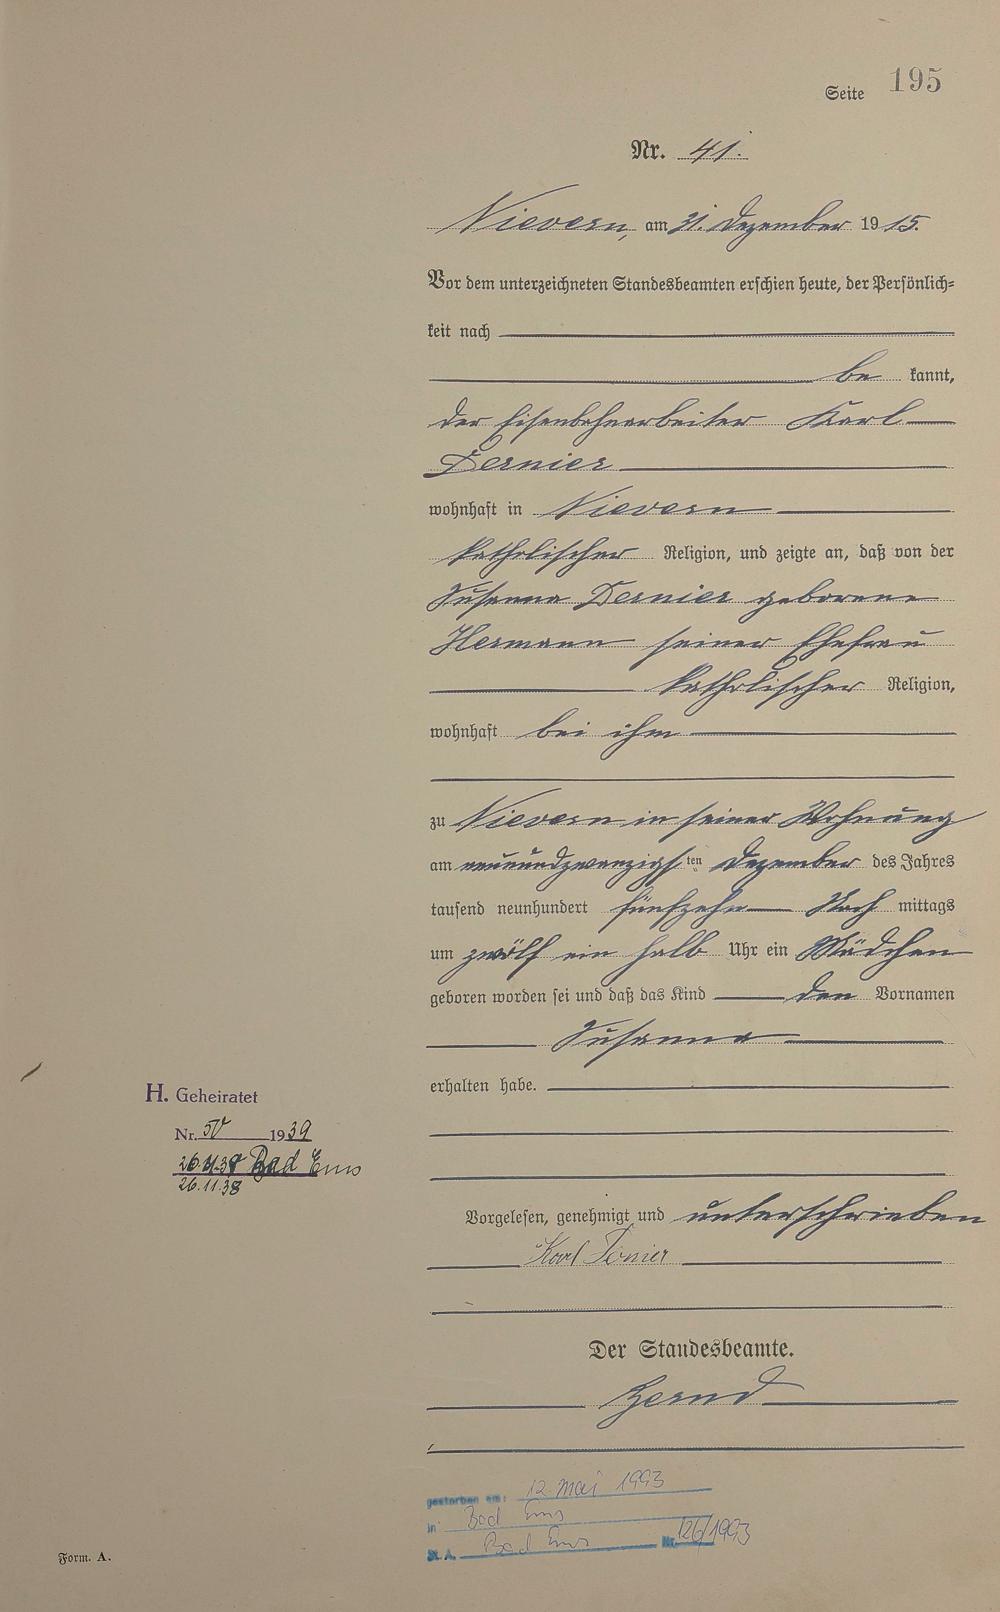 Seite 195
Nr. 41.
Nievern, am 31. Dezember 1915.
Vor dem unterzeichneten Standesbeamten erschien heute, der Persönlich-
keit nach
be kannt,
der Eisenbahnarbeiter Karl
Dernier
wohnhaft in Nievern
katholischer Religion, und zeigte an, daß von der
Susanna Dernier geborene
Hermann seiner Ehefrau
katholischer Religion,
wohnhaft bei ihm
zu Nievern in seiner Wohnung
am neunundzwanzigsten Dezember des Jahres
tausend neunhundert fünfzehn Nach mittags
um zwölf ein halb Uhr ein Mädchen
geboren worden sei und daß das Kind den Vornamen
Susanna
erhalten habe.
H. Geheiratet
Nr. 50 1939
Bad Ems
26.11.38
Vorgelesen, genehmigt und unterschrieben
Karl
Der Standesbeamte.
gestorben am: 12. Mai 1993
in Bad Ems
St. A. Bad Ems Nr. 126/1993
Form. A.